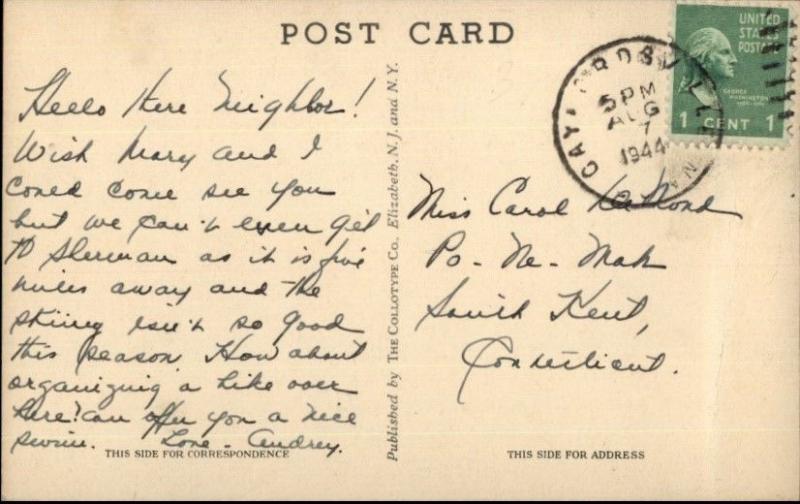 POST CARD
Hello Here Neighbor!
Wish Mary and I
could come see you
but we can't even get
to Sherman as it is five
miles away and the
skiing isn't so good
this season. How about
organizing a hike over
here? Can offer you a nice
swim. Love - Audrey.
THIS SIDE FOR CORRESPONDENCE
Published by THE COLLOTYPE CO., Elizabeth, N. J. and N. Y.
UNITED
STATES
POSTAGE
GEORGE
WASHINGTON
1 CENT 1
GAYLORDSVILLE
5 PM
AUG
7
1944
Miss Carol
Po-Ne-Mah
South Kent,
Connecticut.
THIS SIDE FOR ADDRESS